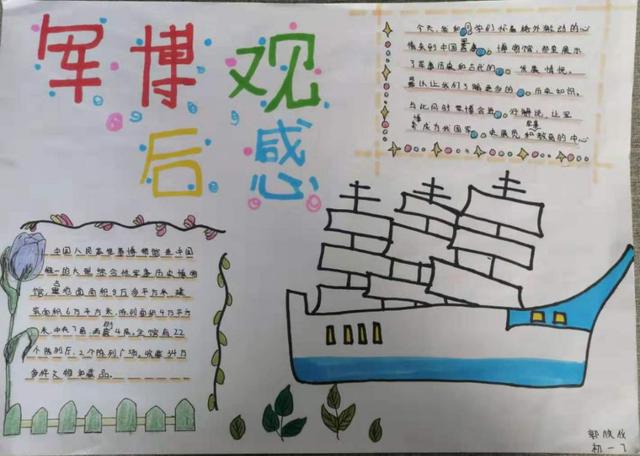 军博观
后感
今天,我和同学们怀着格外激动的心
情来到中国军事博物馆,那里展示
了军事历史和古代的发展情况。
让我们了解更多的历史知识。
与此同时军博会 好解说,让军
博成为我国军事 展览和教育的中心
中国人民革命军事博物馆是中国
唯一的大型综合性军事历史博物
馆,占地面积9万多平方米,建
筑面积6万平方米,陈列面积4万平方
米,中央7层,两侧4层。全馆有22
个陈列厅,2个陈列广场。收藏34万
多件文物和藏品。
初一7